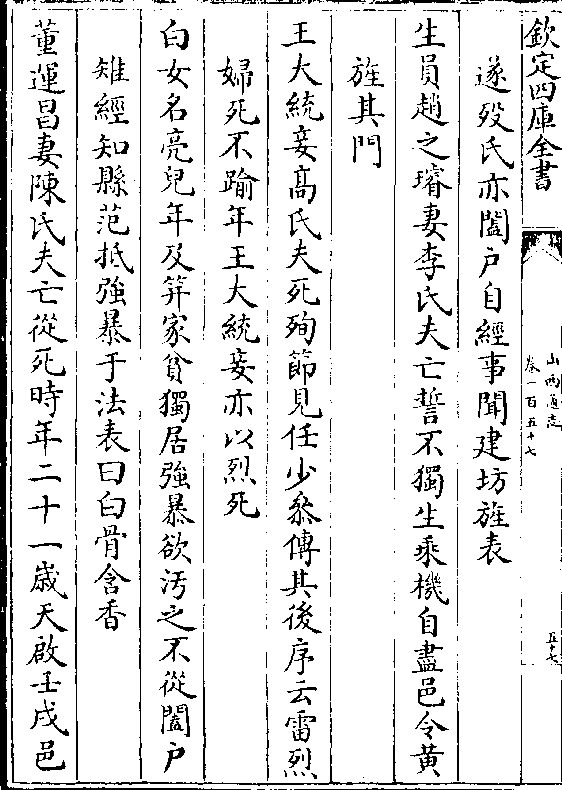 欽定四庫全書
山西通志
卷一百五十七
五十七
遂歿氏亦闔户自經事聞建坊旌表
生員趙之璿妻李氏夫亡誓不獨生乘機自盡邑令黄
旌其門
王大統妾髙氏夫死殉節見任少叅傳其後序云雷烈
婦死不踰年王大統妾亦以烈死
白女名亮兒年及笄家貧獨居強暴欲汚之不從闔户
雉經知縣范抵強暴于法表曰白骨含香
董運昌妻陳氏夫亡從死時年二十一嵗天啟壬戌邑